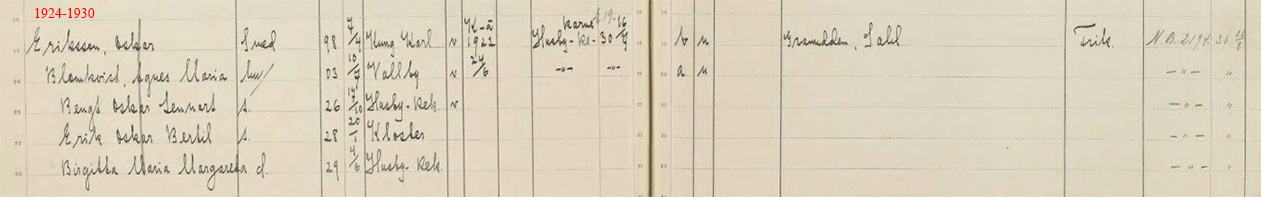 1924-1930
Eriksson, Oskar Smed 98 7/4 Kung Karl v K-a 1922 Husby-Re- 30 16/4 b n Sahl Frik. N.B. 2194.
Blomkvist, Agnes Maria hu/ 03 10/4 Vallby v 24/6 -"- -"- a n -"- "
Bengt Oskar Lennart s. 26 17/10 Husby-Rek. v -"- "
Erik Oskar Bertil s. 28 20/1 Kloster -"- "
Birgitta Maria Margareta d. 29 4/6 Husby-Rek. -"- "